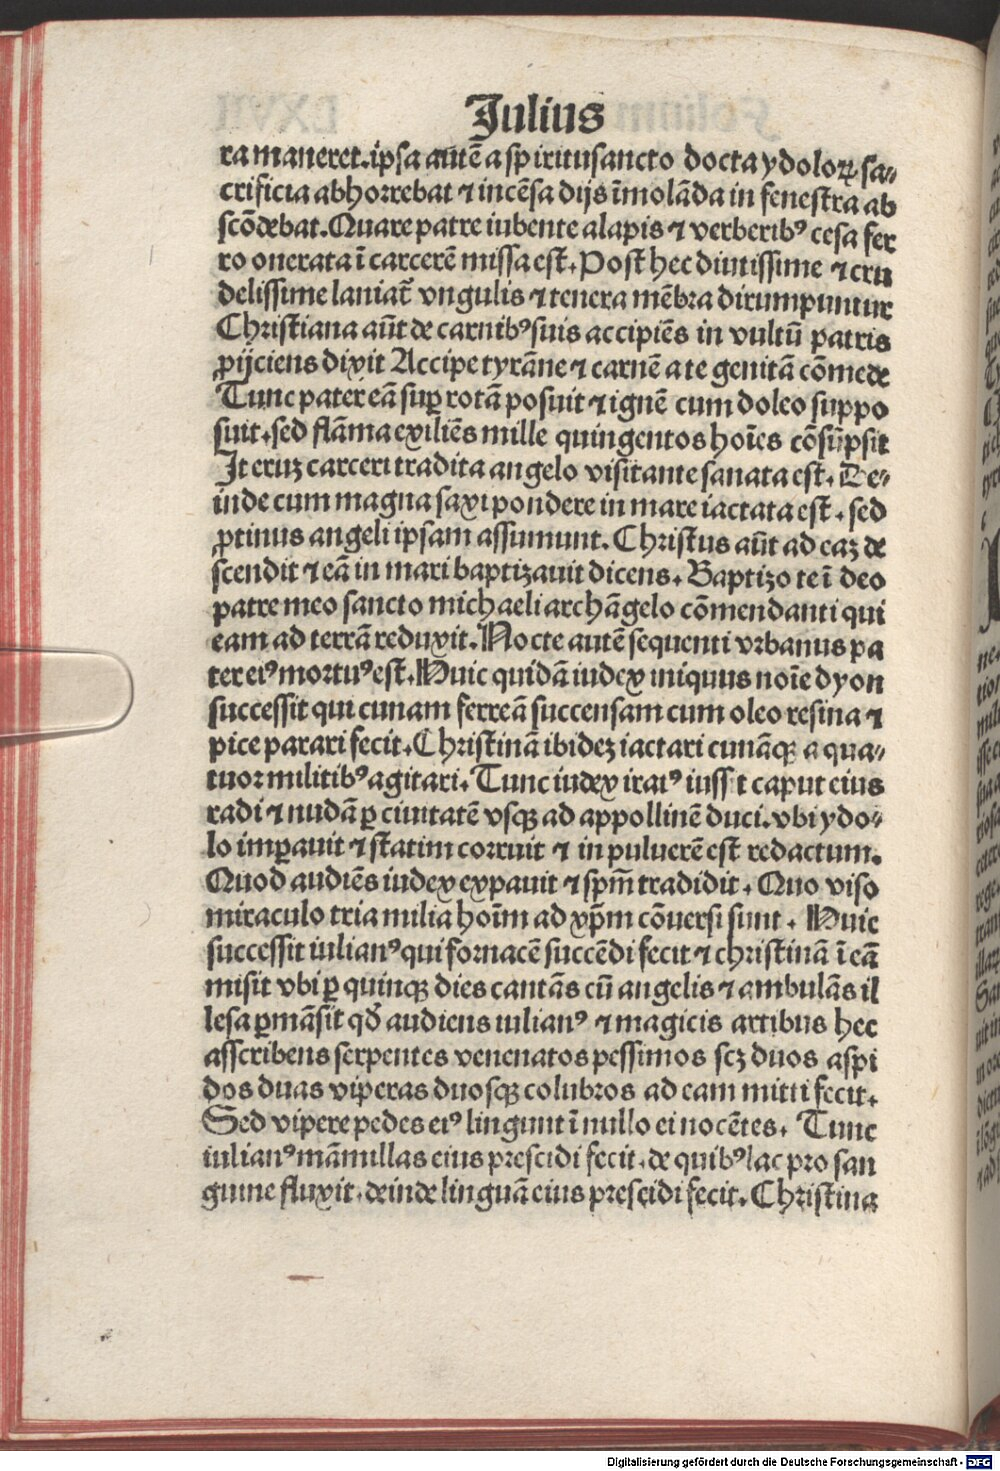 Julius
ra maneret. ipsa autē a spiritusancto docta ydoloꝝ sa⸗
crificia abhorrebat ⁊ incēsa dijs īmolāda in fenestra ab
scōdebat. Quare patre iubente alapis ⁊ verberibꝰ cesa fer
ro onerata ī carcerē missa est. Post hec diutissime ⁊ cru
delissime laniat᷑ vngulis ⁊ tenera mēbra dirumpuntur
Christiana aūt de carnibꝰ suis accipiēs in vultū patris
ꝓijciens dixit Accipe tyrāne ⁊ carnē a te genitā cōmede
Tunc pater eā suꝑ rotā posuit ⁊ ignē cum doleo suppo
suit. sed flāma exiliēs mille quingentos hoīes cōsūpsit
Jteruꝫ carceri tradita angelo visitante sanata est. De⸗
inde cum magna saxi pondere in mare iactata est. sed
ꝓtinus angeli ipsam assumunt. Christus aūt ad eaꝫ de
scendit ⁊ eā in mari baptizauit dicens. Baptizo te ī deo
patre meo sancto michaeli archāgelo cōmendanti qui
eam ad terrā reduxit. Nocte autē sequenti vrbanus pa
ter eiꝰ mortuꝰ est. Huic quidā iudex iniquus noīe dyon
successit qui cunam ferreā succensam cum oleo resina ⁊
pice parari fecit. Christinā ibideꝫ iactari cunāqꝫ a qua⸗
tuor militibꝰ agitari. Tunc iudex iratꝰ iuss t caput eius
radi ⁊ nudā ꝑ ciuitatē vsqꝫ ad appollinē duci. vbi ydo⸗
lo imꝑauit ⁊ statim corruit ⁊ in puluerē est redactum.
Quod audiēs iudex expauit ⁊ spm̄ tradidit. Quo viso
miraculo tria milia hoīm ad xp̄m cōuersi sunt. Huic
successit iulianꝰ qui fornacē succēdi fecit ⁊ christinā ī eā
misit vbi ꝑ quinqꝫ dies cantās cū angelis ⁊ ambulās il
lesa ꝑmāsit qđ audiens iulianꝰ ⁊ magicis artibus hec
asscribens serpentes venenatos pessimos scꝫ duos aspi
dos duas viperas duosqꝫ colubros ad eam mitti fecit.
Sed vipere pedes eiꝰ lingunt ī nullo ei nocētes. Tunc
iulianꝰ māmillas eius prescidi fecit. de quibꝰ lac pro san
guine fluxit. deinde linguā eius prescidi fecit. Christina
Digitalisierung gefördert durch die Deutsche Forschungsgemeinschaft - DFG